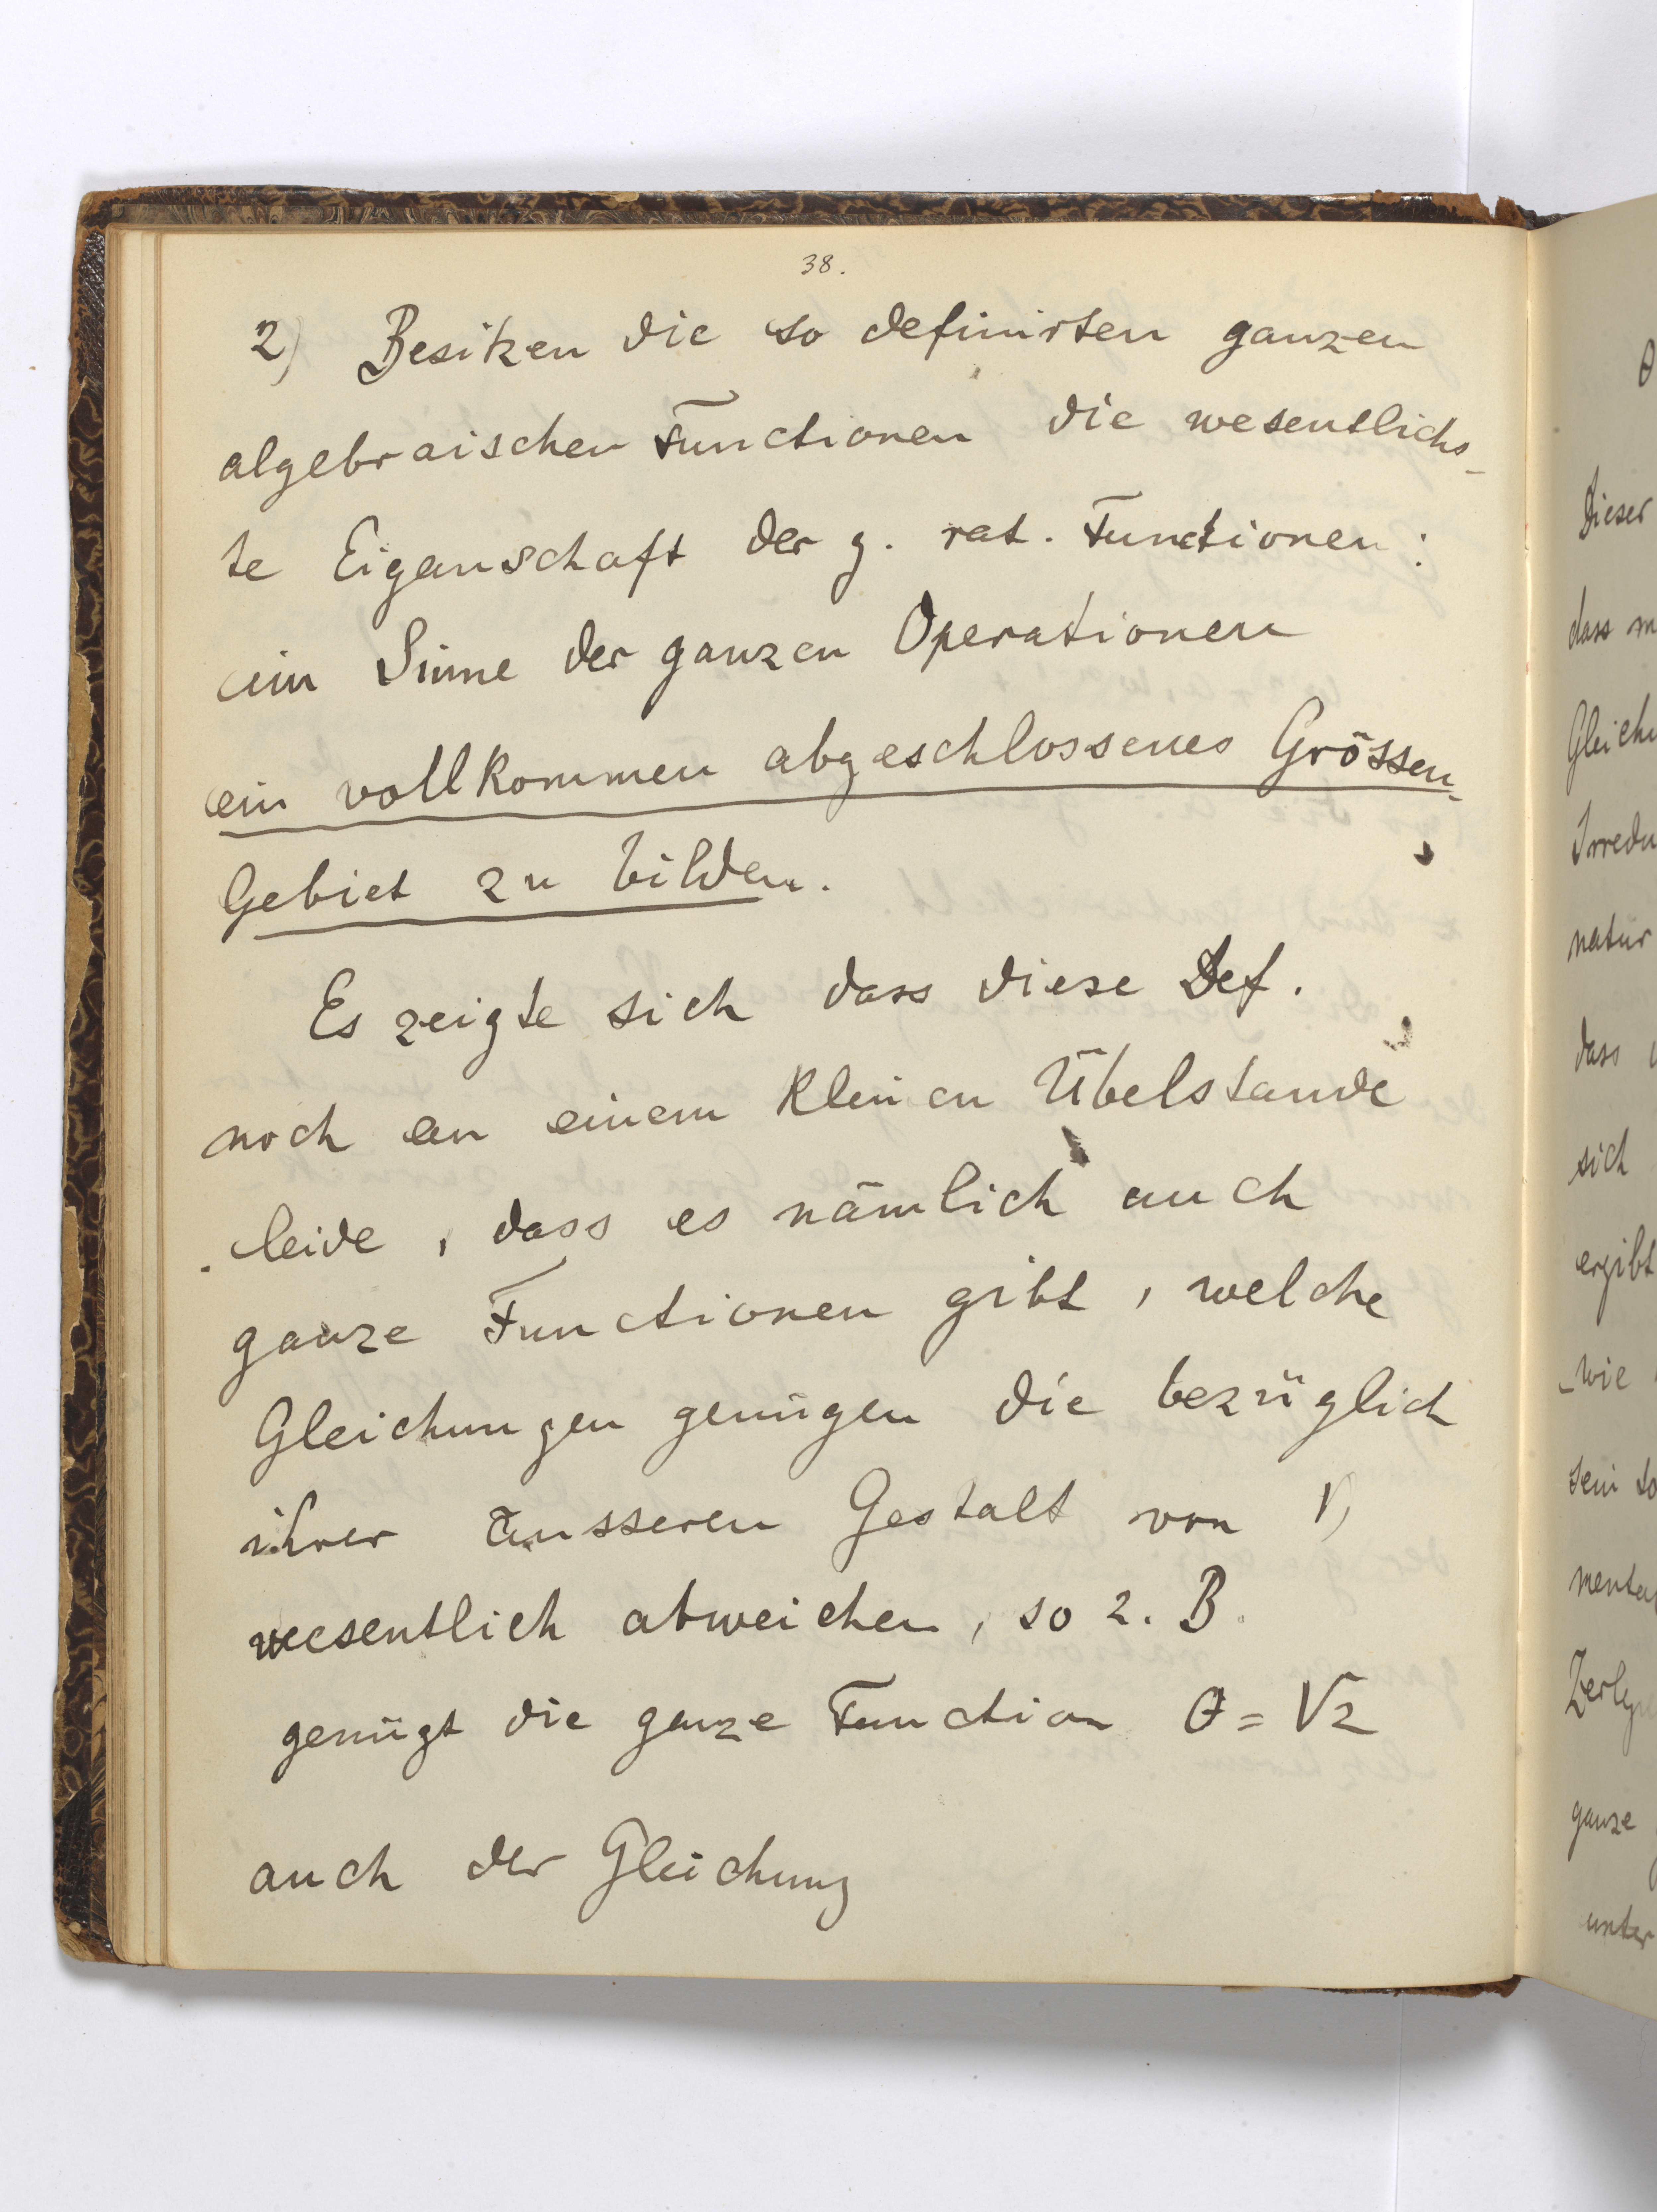 38.
2) Besitzen die so definirten ganzen
algebraischen Functionen die wesentlichs-
te Eigenschaft der g. rat. Functionen:
im Sinne der ganzen Operationen
ein vollkommen abgeschlossenes Grössen-
Gebiet zu bilden.
Es zeigte sich dass diese Def.
noch an einem kleinen Übelstande
leide, dass es nämlich auch
ganze Functionen gibt, welche
Gleichungen genügen die bezüglich
ihrer äusseren Gestalt von 1)
wesentlich abweichen, so z. B.
genügt die ganze Function θ = √z
auch der Gleichung
θ
Dieser
dass m
Gleichu
Irredu
natür
dass
sich
ergibt
wie
sein so
menta
Zerleg
ganze
unter